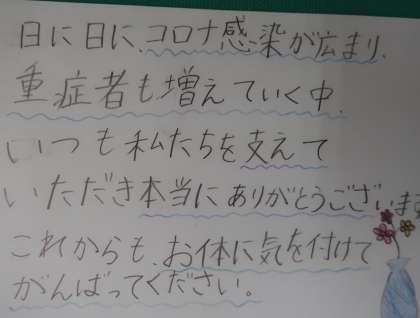 日に日に、コロナ感染が広まり、
重症者も増えていく中、
いつも私たちを支えて
いただき本当にありがとうございます
これからも、お体に気を付けて
がんばってください。